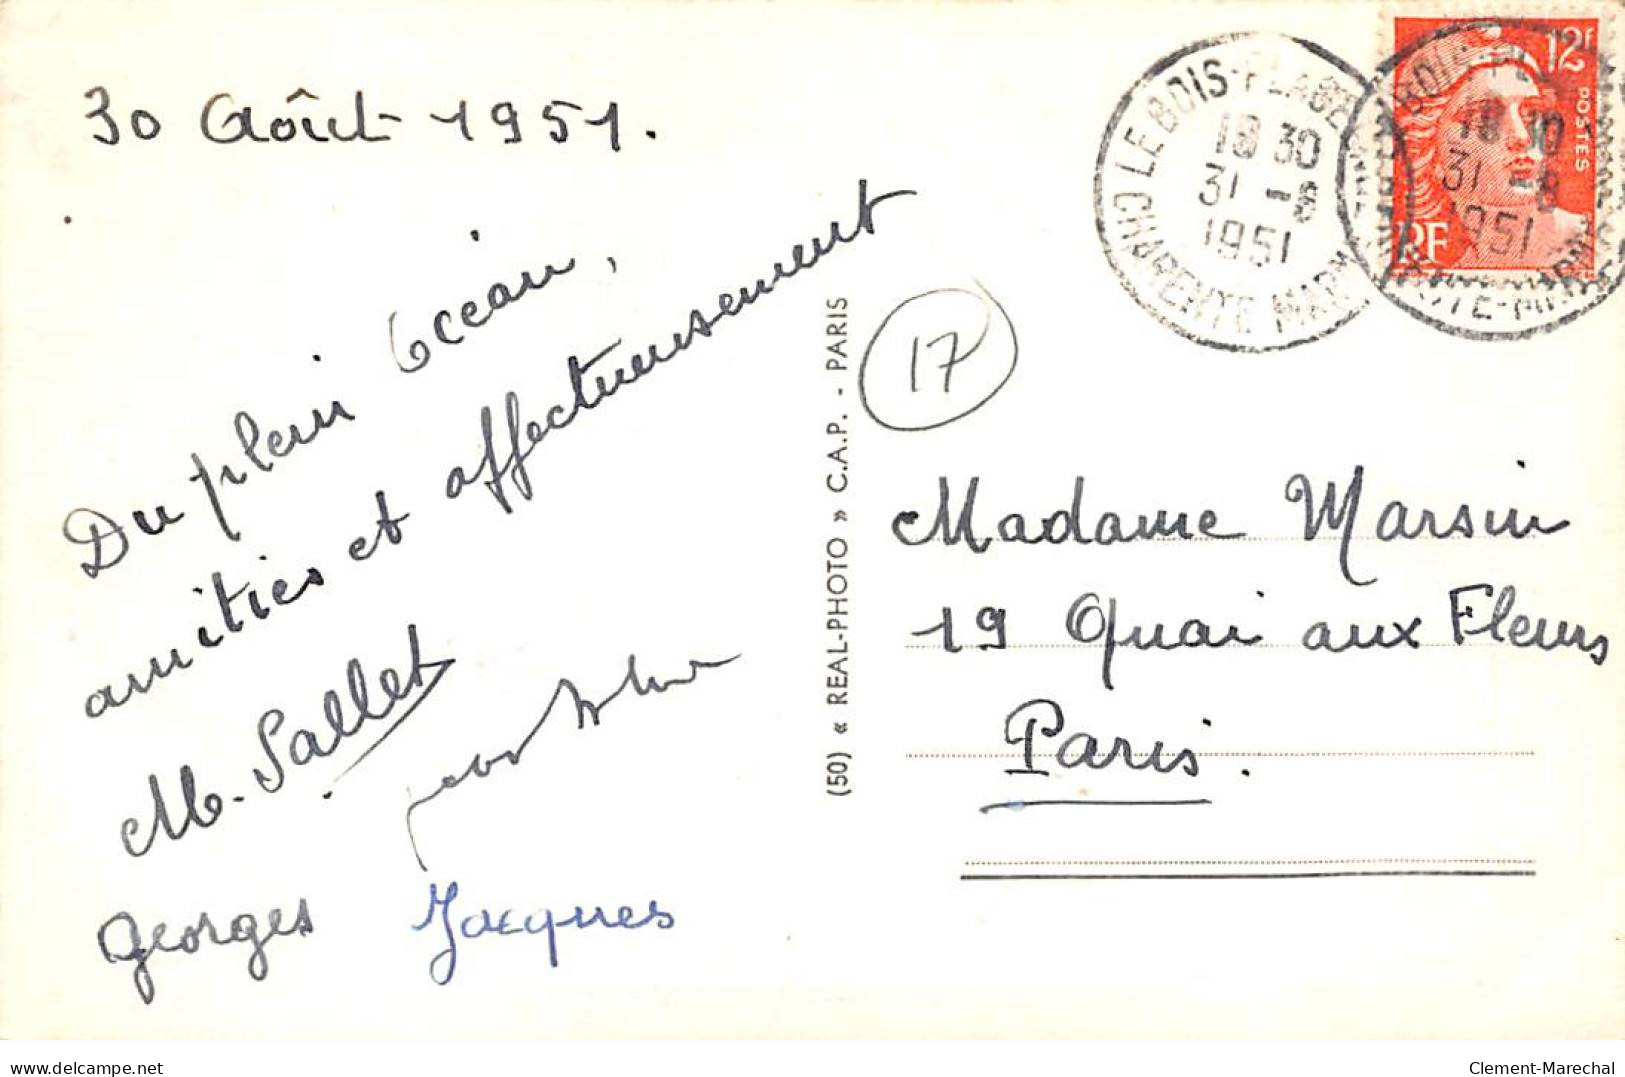 30 Août 1951.
Du plein Océan,
amitiés et affectueusement
M. Sallet
Georges Jacques
(50) « REAL-PHOTO » C.A.P. - PARIS
17
LE BOIS-PLAGE
18 30
31 -8
1951
CHARENTE-MARME
12F
POSTES
RF
18 30
31 -8
1951
Madame Marsin
19 Quai aux Fleurs
Paris.
www.delcampe.net
Clement-Marechal